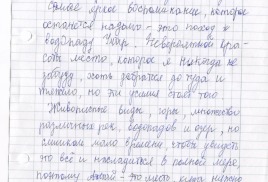 Самое яркое воспоминание, которое
останется надолго - это поход к
водопаду Учар. Невероятной кра-
соты место, которое я никогда не
забуду, хоть добраться до туда и
тяжело, но эти усилия стоят того
Живописные виды, горы, множество
различных рек, водопадов и озёр, но
слишком мало времени, чтобы увидеть
это всё и насладится в полной мере,
поэтому Алтай - это место, куда нужно